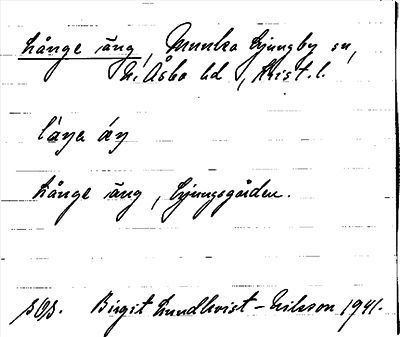 Långe äng, Munka Ljungby sn,
N. Åsbo hd, Krist. l.
Långe äng, Ljungsgården.
sOs. Birgit Lundkvist-Eriksson 1941.